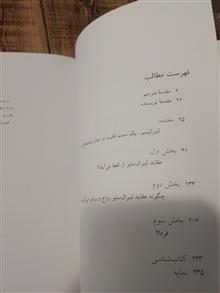 فهرست مطالب
۷ مقدمهٔ مترجم
۲۲ مقدمهٔ نویسنده
۲۵ مقدمه
لیبرالیسم: یک سنت اقلیت در
۳۱ بخش اول
عقاید لیبرال‌ستیز از کجا می‌آید؟
۱۳۳ بخش دوم
چگونه عقاید لیبرال‌ستیز رواج و
۲۰۷ بخش سوم
فردا؟
۲۲۳ کتاب‌شناسی
۲۳۵ نمایه